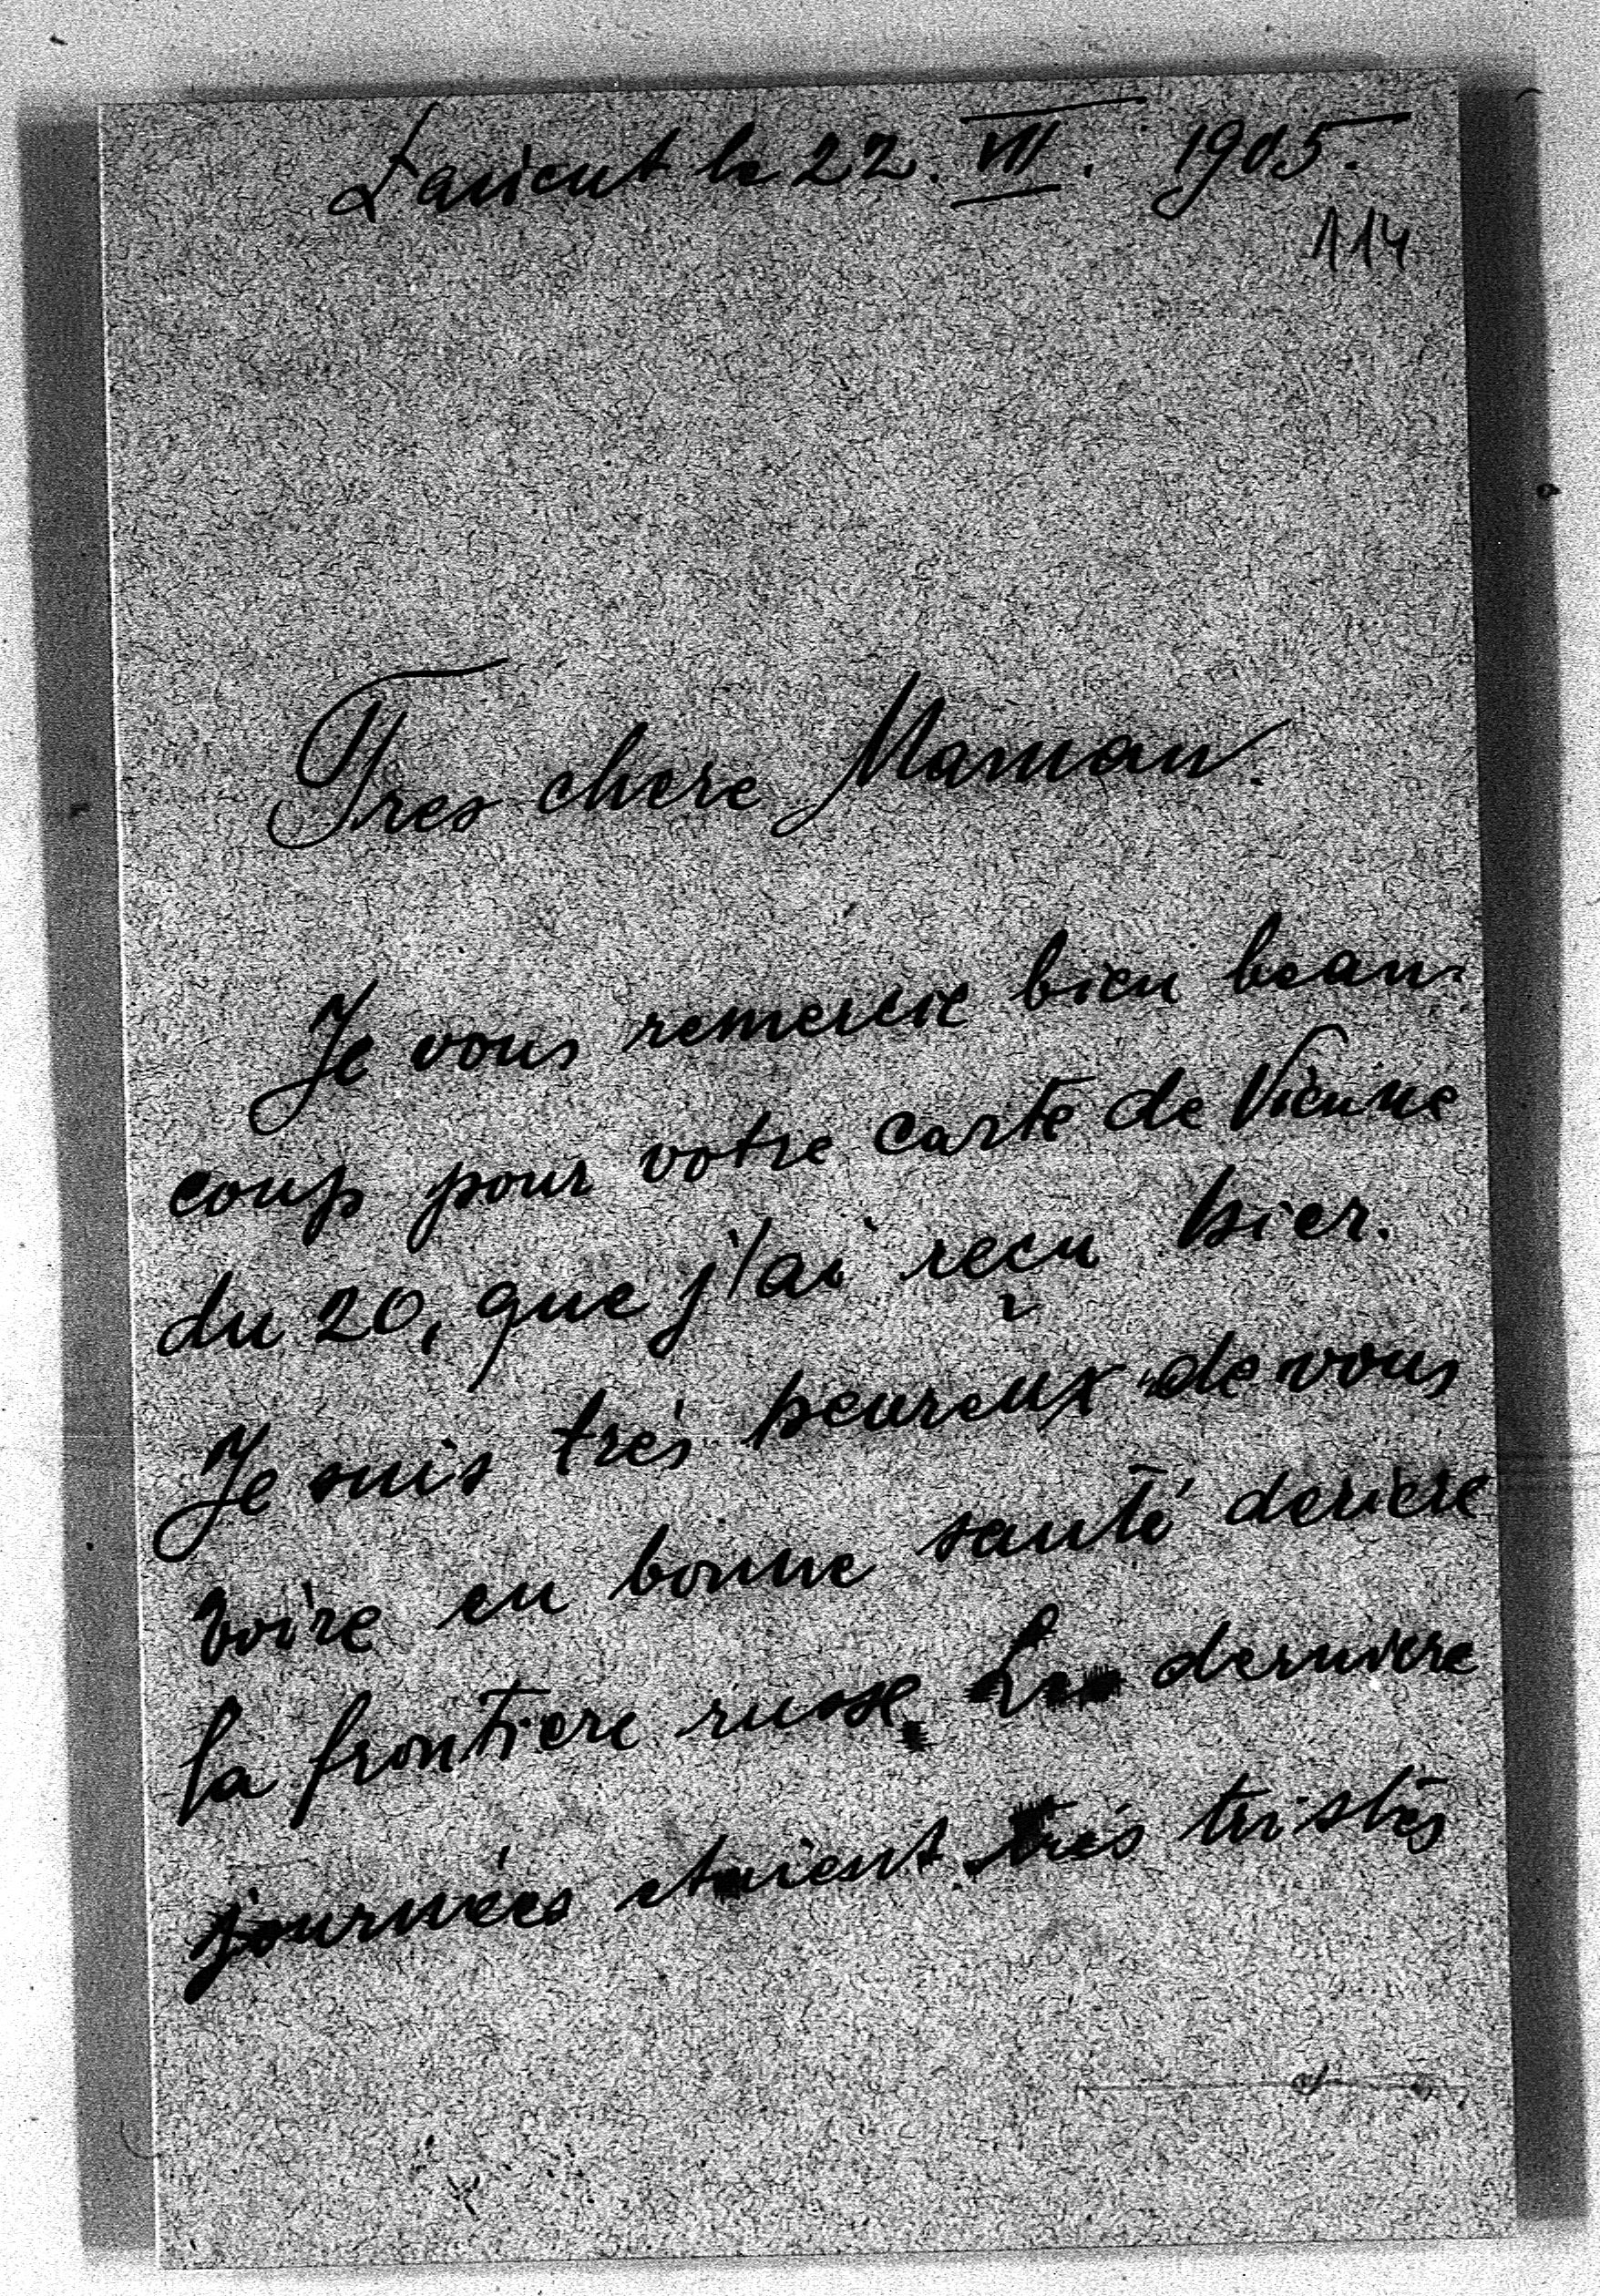 Łancut le 22. VII. 1905.
114
Tres chere Maman.
Je vous remercie bien beau-
coup pour votre carte de Vienne
du 20, que j'ai reçu hier.
Je suis trés heureux de vous
voire en bonne santé deriere
la frontiere russe. Les derniere
journées etaient trés tristes